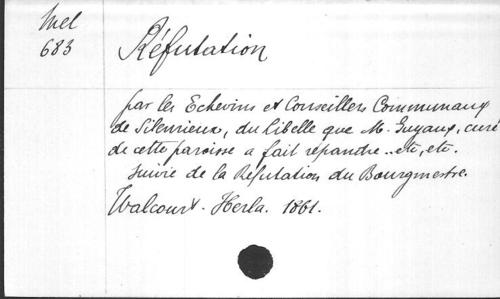 Mel
683
Réfutation
par les Echevins et Conseillers Communaux
de Silenrieux, du libelle que M. Guyaux, curé
de cette paroisse a fait répandre.. etc, etc.
Suivie de la Réfutation du Bourgmestre.
Walcourt. Herla. 1861.